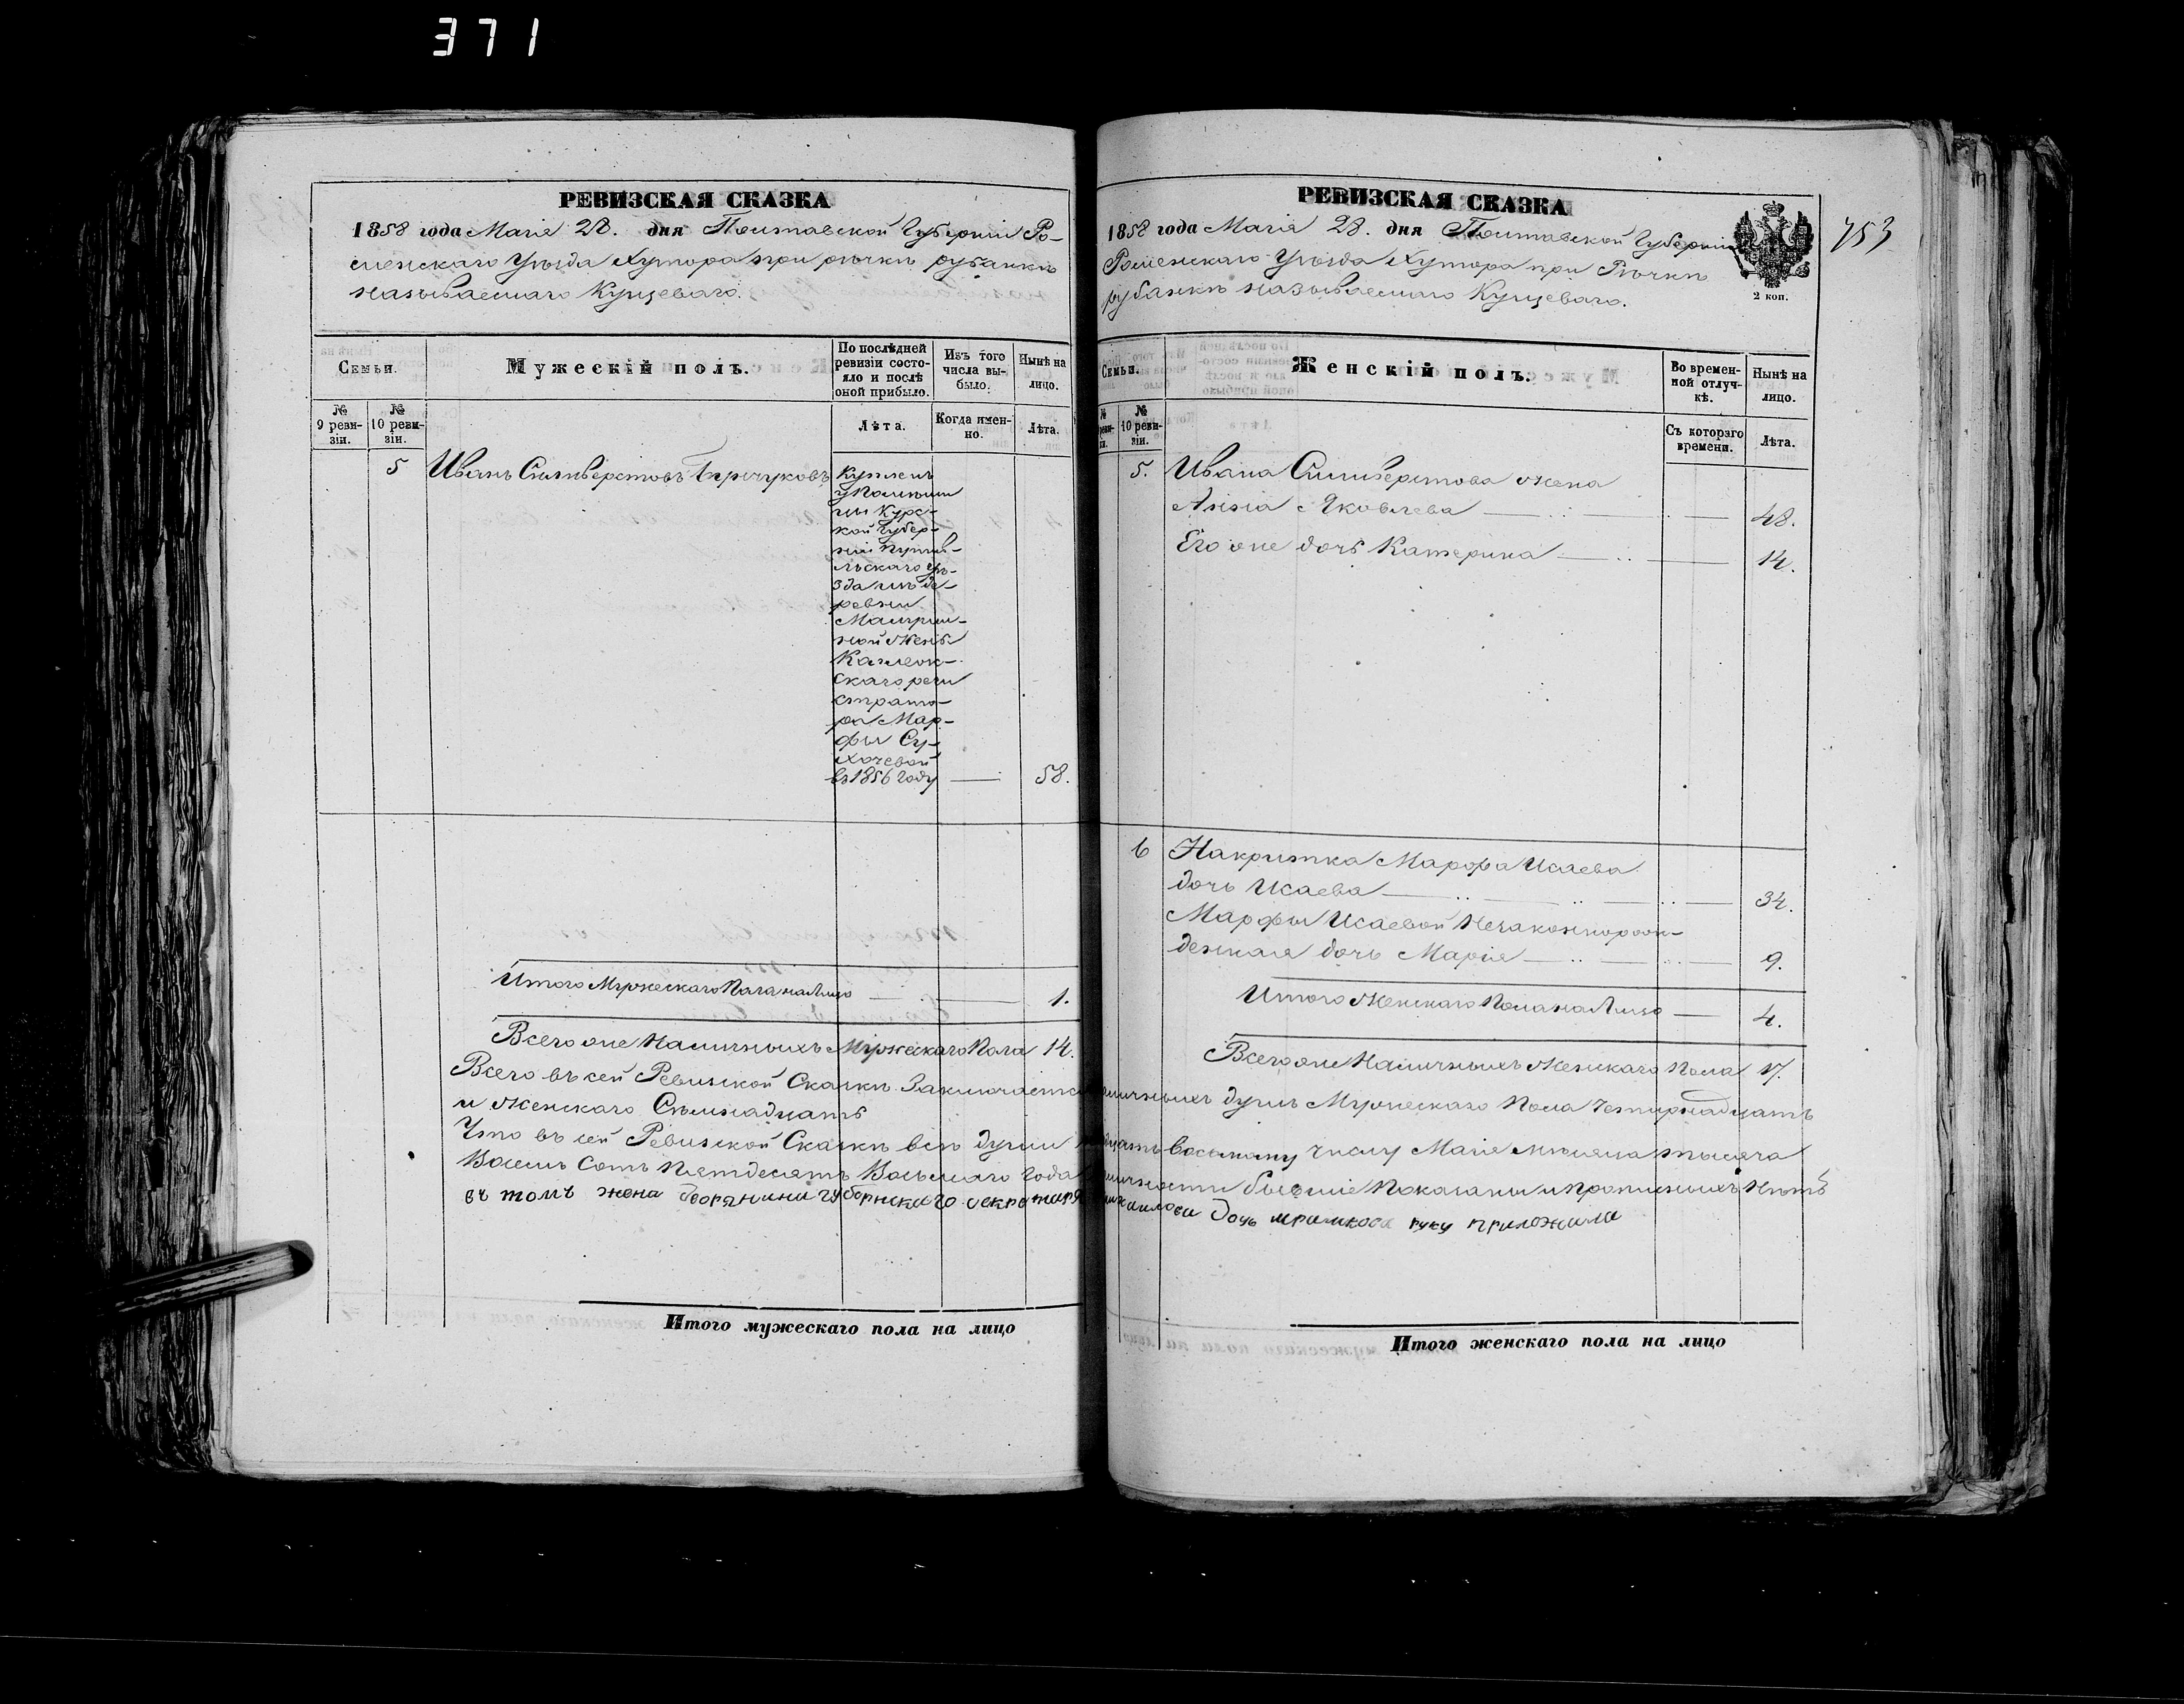 371
РЕВИЗСКАЯ СКАЗКА
1858 года Маія 28. дня Полтавской Губерніи Ро-
менскаго Уѣзда Хутора при рѣчкѣ рубанкѣ
называемаго Кунцеваго.
Семьи.
Мужескій полъ.
По послѣдней ревизіи состояло и послѣ оной прибыло.
Изъ того числа выбыло.
Нынѣ на лицо.
№ 9 ревизіи.
№ 10 ревизіи.
Лѣта.
Когда именно.
Лѣта.
5 Иванъ Сильверстовъ
купленъ
у помѣщи
цы Курс-
кой Губер-
ніи Путив-
льскаго уѣ-
зда изъ де-
ревни
ной жены
Коллеж-
скаго реги
страто-
ра Мар-
фы Су-
хочевой
въ 1856 году — 58.
Итого Мужескаго Пола на Лицо — 1.
Всего онѣ Наличныхъ Мужескаго Пола 14.
Всего въ сей Ревизской Сказкѣ Заключается
и Женскаго Сѣмнадцать
Что въ сей Ревизской Сказкѣ всѣ души
Восемь Сотъ Пятдесятъ Восьмаго Года
въ томъ жена дворянина губернскаго секретаря
Итого мужескаго пола на лицо
РЕВИЗСКАЯ СКАЗКА
1858 года Маія 28. дня Полтавской Губерніи
Роменскаго Уѣзда Хутора при Рѣчкѣ
рубанкѣ называемаго Кунцеваго.
2 коп.
753
Семьи.
Женскій полъ.
Во временной отлучкѣ.
Нынѣ на лицо.
№ 10 ревизіи.
Съ котораго времени.
Лѣта.
5. Ивана Сильверстова жена
Яковлева — 48.
Его оне дочь Катерина — 14.
6 Накритка Марфа Исаева
дочь Исаева — 34.
Марфы Исаевой Незаконнорож-
денная дочь Марія — 9.
Итого Женскаго Пола на Лицо — 4.
Всего оне Наличныхъ Женскаго Пола 17.
наличныхъ душъ Мужескаго Пола Четырнадцать
восьмому числу Маія мѣсяца тысяча
наличности бывшіе Показаны и прописныхъ Нѣтъ
дочь руку приложила
Итого женскаго пола на лицо